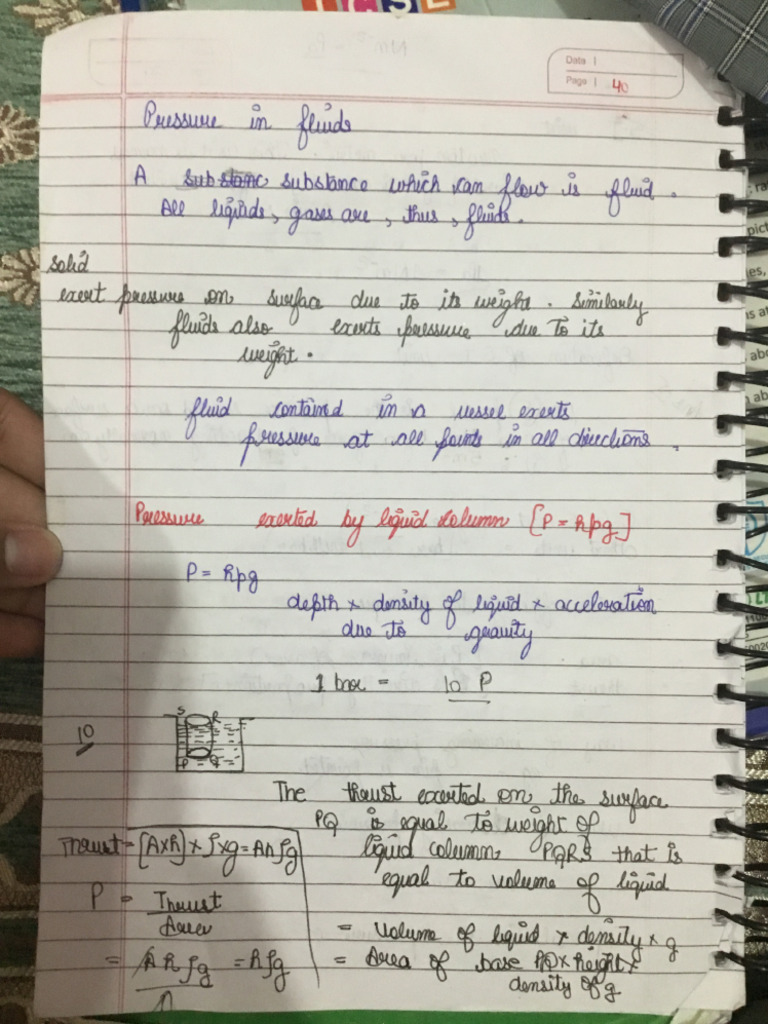 ICSE
Data |
Page | 40
Pressure in fluids
A substance which can flow is fluid.
All liquids, gases are, thus, fluids.
Solid
exert pressure on surface due to its weight. Similarly
fluids also exerts pressure due to its
weight.
fluid contained in a vessel exerts
pressure at all points in all directions.
Pressure exerted by liquid column [P = hρg]
P = hρg
depth × density of liquid × acceleration
due to gravity
1 bar = 10 P
10
S R
P Q
The thrust exerted on the surface
PQ is equal to weight of
liquid column PQRS that is
equal to volume of liquid
= volume of liquid × density × g
= Area of base PQ × height ×
density of g
Thrust = [A×h] × ρ×g = Ahρg
P = Thrust
Area
= A h ρg = hρg
A